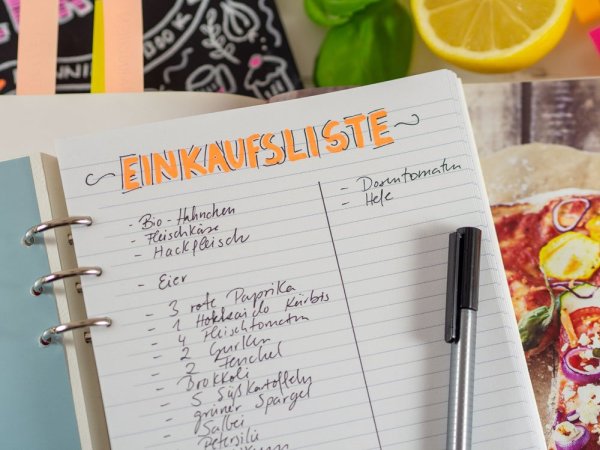 EINKAUFSLISTE
- Bio-Hähnchen
- Fleischkäse
- Hackfleisch
- Eier
- 3 rote Paprika
- 1 Hokkaido Kürbis
- 4 Fleischtomaten
- 2 Gurken
- 2 Fenchel
- Brokkoli
- 5 Süßkartoffeln
- grüner Spargel
- Salbei
- Petersilie
- Dosentomaten
- Hefe